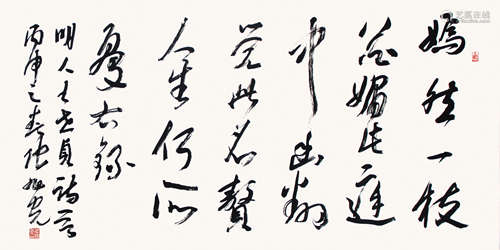 嫣然一枝
花媚此庭
中幽翻
觉此名贅
人生何所
憂右錄
明人王世貞詩
丙申之春张旭光